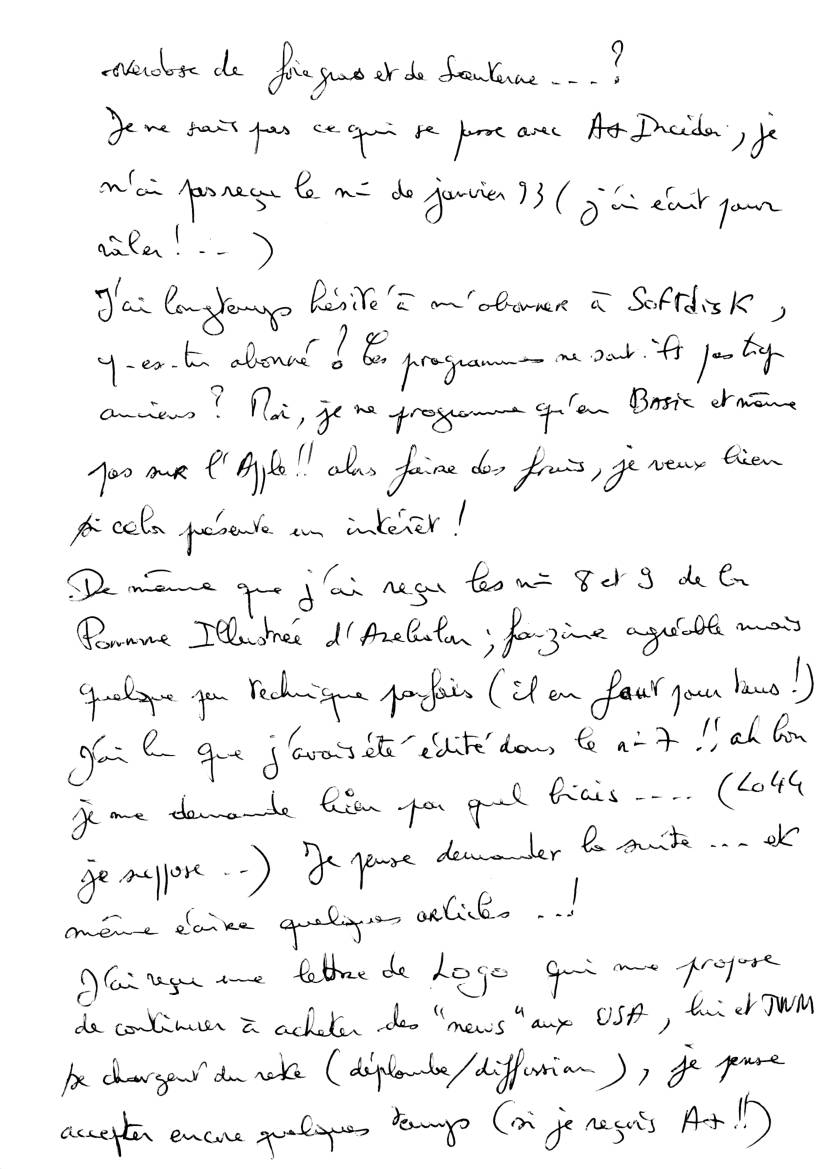 overdose de foie gras et de Sauterne ---?
Je ne sais pas ce qui se passe avec A+ Incider, je
n'ai pas reçu le n= de janvier 93 (j'ai écrit pour
râler! -- )
J'ai longtemps hésité à m'abonner à Softdisk,
y-es-tu abonné? Les programmes ne sont-ils pas trop
anciens? Moi, je ne programme qu'en BASIC et même
pas sur l'Apple!! alors faire des frais, je veux bien
si cela présente un intérêt!
De même que j'ai reçu les n= 8 et 9 de la
Pomme Illustrée d'; fanzine agréable mais
quelque peu technique parfois (il en faut pour tous!)
J'ai lu que j'avais été édité dans le n=7 !! ah bon
je me demande bien par quel biais ---- (LO44
je suppose --) Je pense demander la suite --- et
même écrire quelques articles --!
J'ai reçu une lettre de LOGO qui me propose
de continuer à acheter des "news" aux USA, lui et JWM
se chargent du reste (déplombe/diffusion), je pense
accepter encore quelques temps (si je reçois A+!!)